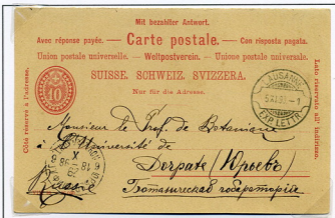 Mit bezahlter Antwort.
Avec réponse payée. — Carte postale. — Con risposta pagata.
Union postale universelle. — Weltpostverein. — Unione postale universale.
SUISSE. SCHWEIZ. SVIZZERA.
Nur für die Adresse.
Côté réservé à l'adresse.
Lato riservato all'indirizzo.
10
LAUSANNE
EXP. LETTR.
Monsieur le Prof. de Botanique
à l'Université de
Dorpate (Юрьевъ)
Russie